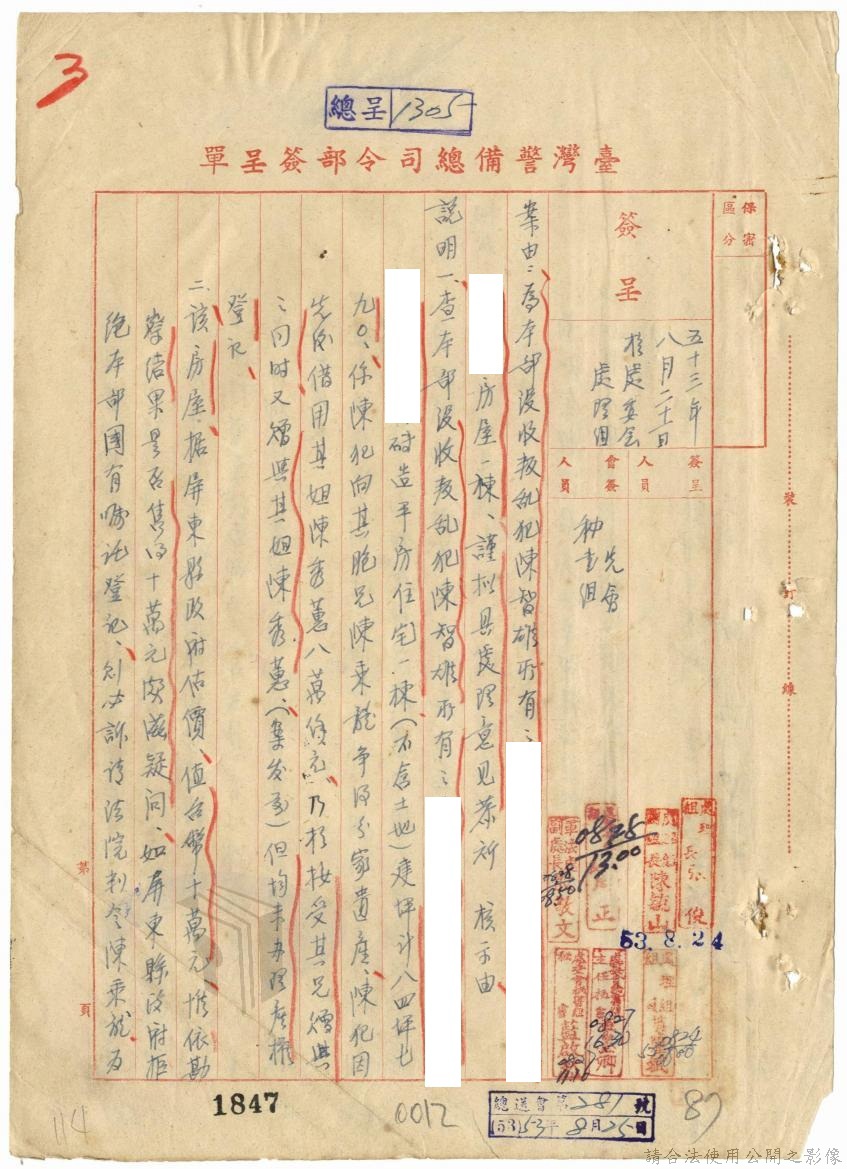 3
總呈 1305
臺灣警備總司令部簽呈單
保密區分
簽呈
五十三年
八月二十一日
處理組
簽呈人員
會簽人員
先會
案由：為本部沒收叛乱犯陳智雄所有：
房屋一棟、謹擬具處理意見恭祈 核示由
說明一、查本部沒收叛乱犯陳智雄所有：
磚造平房住宅一棟（不含土地）建坪計八四坪七
九〇、係陳犯向其胞兄陳秉龍爭得分家遺產、陳犯因
先後借用其姐陳秀蕙八萬餘元、乃於接受其兄贈與
：同時又贈與其姐陳秀蕙、（集发至）但均未办理產權
登记、
二、該房屋、據屏東縣政府估價、值台幣十萬元、惟依勘
察結果是否售得十萬元頗滋疑问、如屏東縣政府拒
絕本部國有嘱託登记、則必訴請法院判令陳秉龍为
裝
訂
線
第
頁
陳毓山
53.8.24
0828
13.00
1847
114
0012
總送會第281號
(53)53年8月25日
87
請合法使用公開之影像